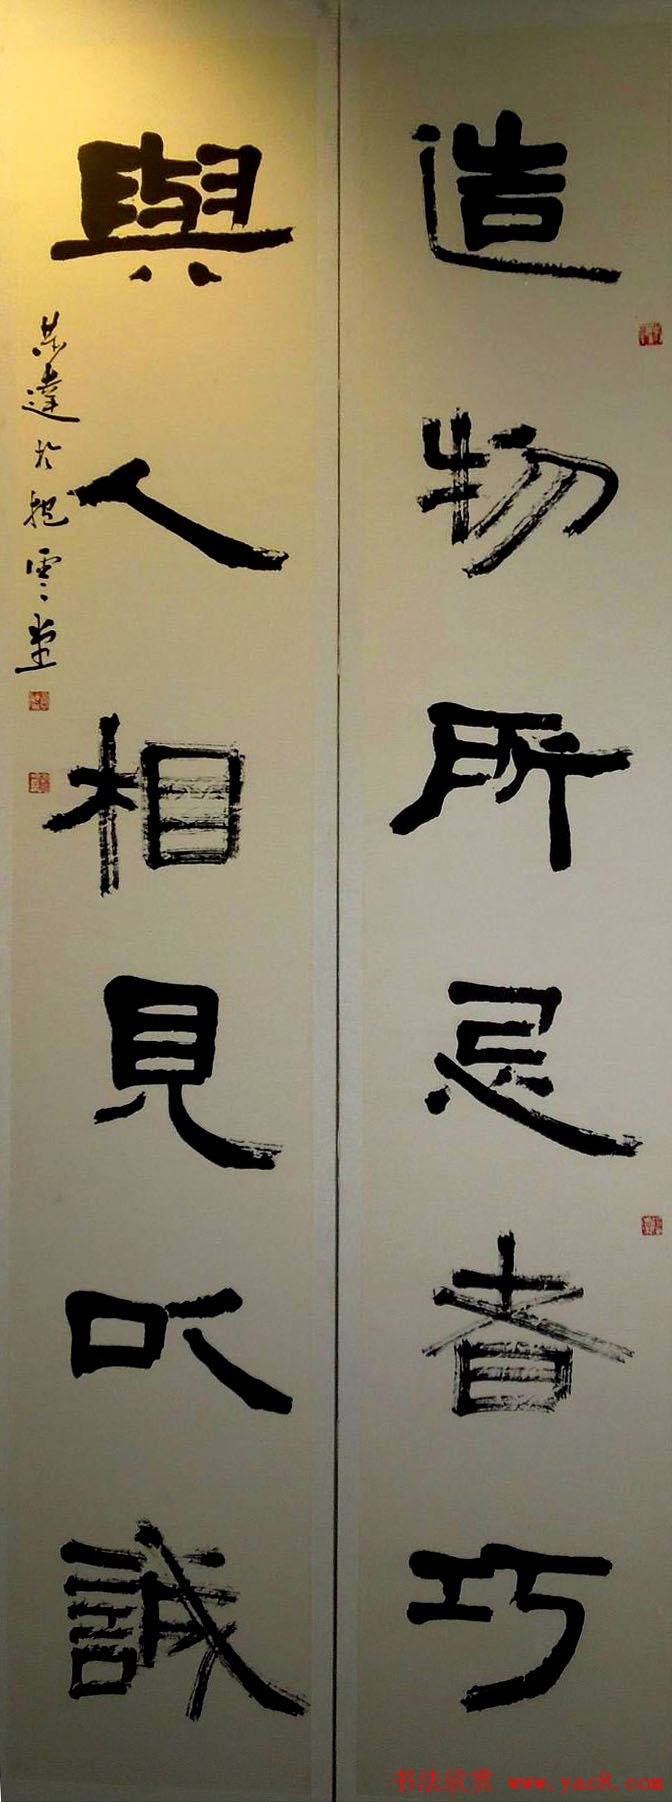 造物所忌者巧
與人相見以誠
達於抱雲堂
书法欣赏 www.yac8.com